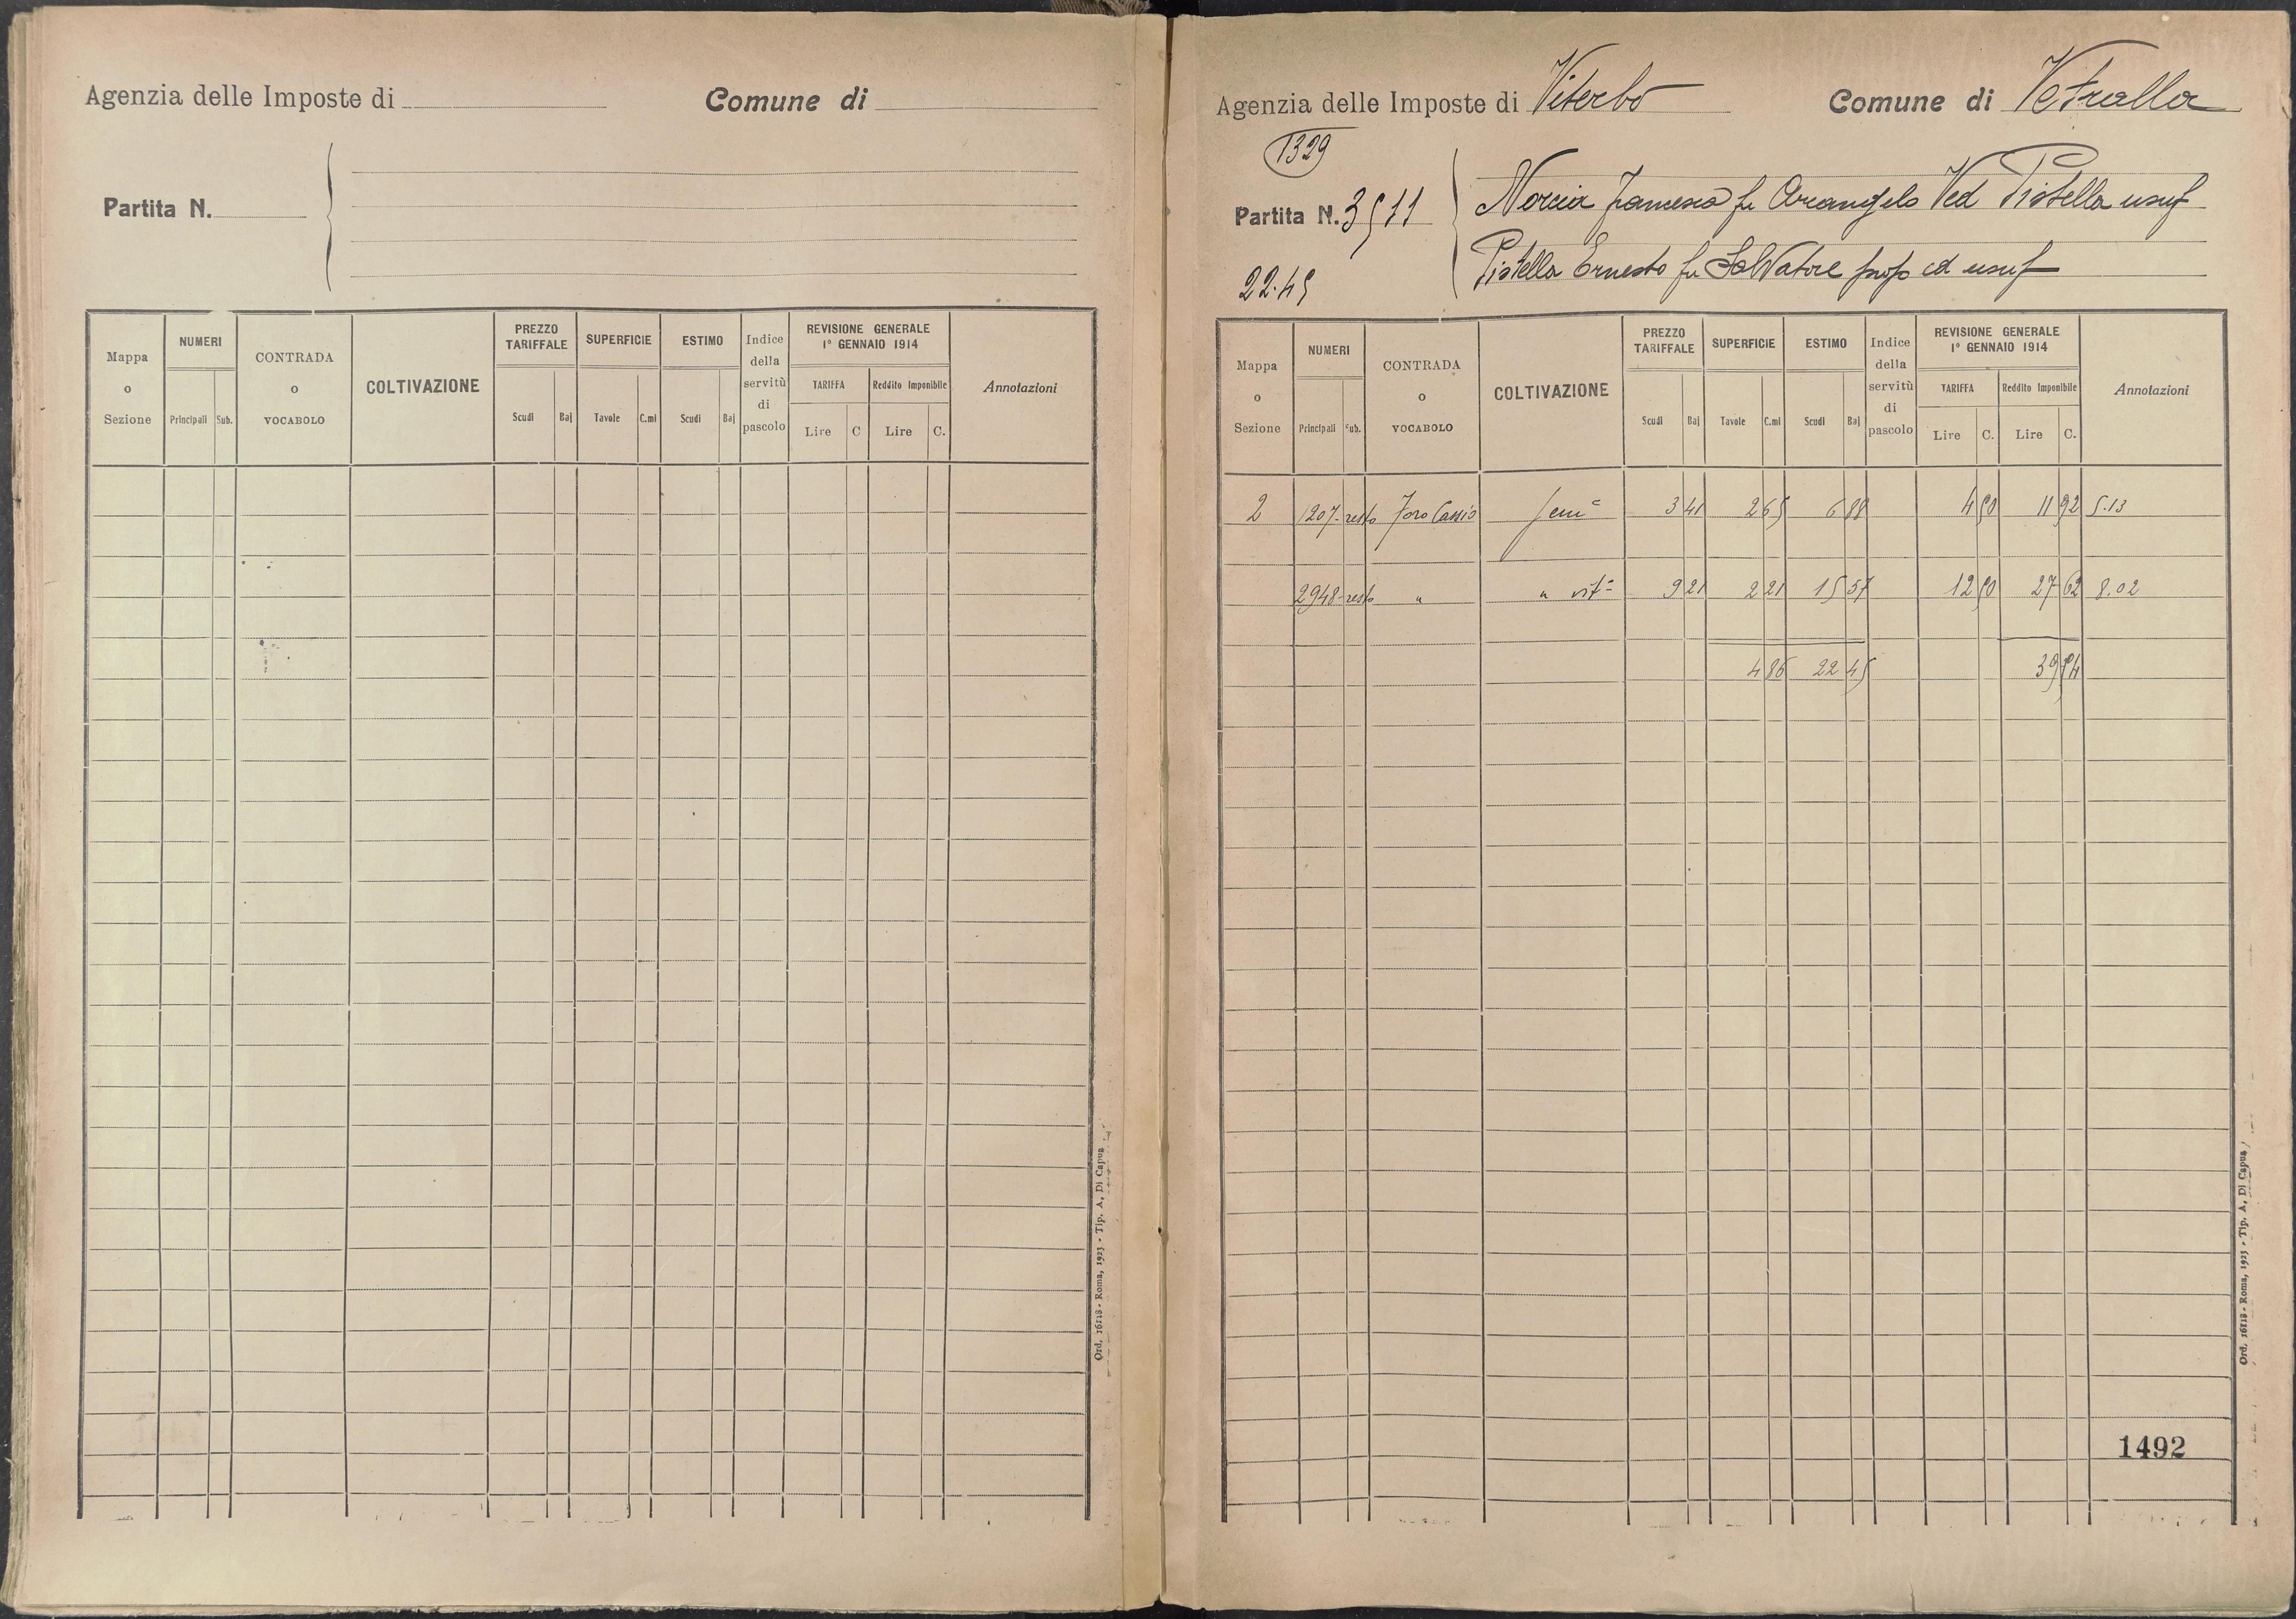 Agenzia delle Imposte di
Comune di
Partita N.
Mappa o Sezione
NUMERI
Principali Sub.
CONTRADA o VOCABOLO
COLTIVAZIONE
PREZZO TARIFFALE
Scudi Baj
SUPERFICIE
Tavole C.mi
ESTIMO
Scudi Baj
Indice della servitù di pascolo
REVISIONE GENERALE
1° GENNAIO 1914
TARIFFA
Lire C
Reddito Imponibile
Lire C.
Annotazioni
Ord. 16118 - Roma, 1923 - Tip. A. Di Capua
Agenzia delle Imposte di Viterbo
Comune di Vetralla
1329
Partita N. 3511
Norcia Francesca fu Arcangelo Ved Pistella usuf
Pistella Ernesto fu Salvatore prop ed usuf
22.45
Mappa o Sezione
NUMERI
Principali Sub.
CONTRADA o VOCABOLO
COLTIVAZIONE
PREZZO TARIFFALE
Scudi Baj
SUPERFICIE
Tavole C.mi
ESTIMO
Scudi Baj
Indice della servitù di pascolo
REVISIONE GENERALE
1° GENNAIO 1914
TARIFFA
Lire C.
Reddito Imponibile
Lire C.
Annotazioni
2 1207 resto Foro Cassio sem° 3 41 2 65 6 88 4 50 11 92 5.13
2948 resto " " vit° 9 21 2 21 15 57 12 50 27 62 8.02
4 86 22 45 39 54
1492
Ord. 16118 - Roma, 1923 - Tip. A. Di Capua